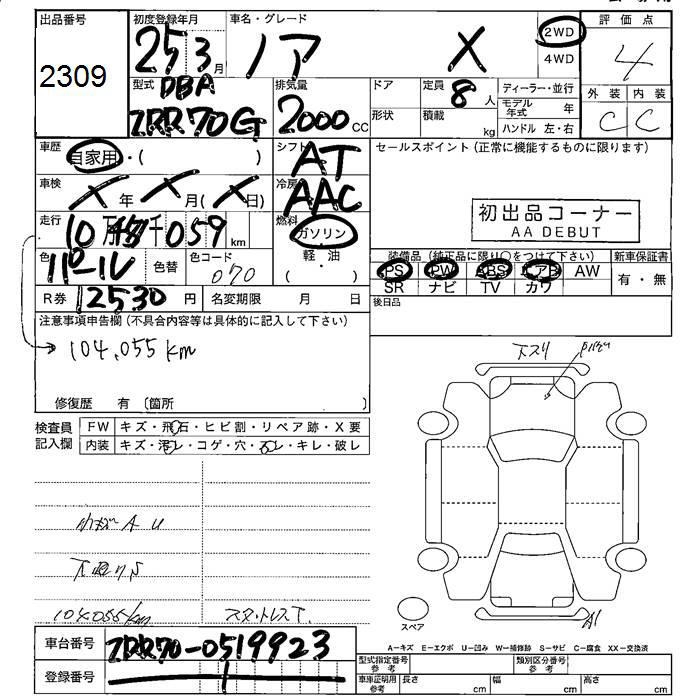 出品番号 初度登録年月 車名・グレード 評価点
2309 25 3月 ノア X 2WD 4WD 4
型式 DBA 排気量 ドア 定員 8人 ディーラー・並行 外装 内装
ZRR70G 2000CC 形状 積載 kg モデル年式 年 C C
ハンドル 左・右
車歴 自家用・( ) シフト AT セールスポイント (正常に機能するものに限ります)
車検 X年 X月(X日) 冷房 AAC
初出品コーナー
AA DEBUT
走行 10万 千059km 燃料 ガソリン
軽・油
装備品 (純正品に限り○をつけて下さい) 新車保証書
色 パール 色替 色コード 070 ( ) PS PW ABS エアB AW 有・無
SR ナビ TV カワ
R券 12530円 名変期限 月 日 後日品
注意事項申告欄 (不具合内容等は具体的に記入して下さい)
→104,055km
下スリ
修復歴 有 [箇所 ]
検査員記入欄 FW キズ・飛石・ヒビ割・リペア跡・X要
内装 キズ・汚レ・コゲ・穴・スレ・キレ・破レ
小キズ A U
104055km スタットレスT.
スペア
A1
A-キズ E-エクボ U-凹み W-補修跡 S-サビ C-腐食 XX-交換済
車台番号 ZRR70-0519923
型式指定番号 参考 類別区分番号 参考
登録番号
車庫証明用 参考 長さ cm 幅 cm 高さ cm